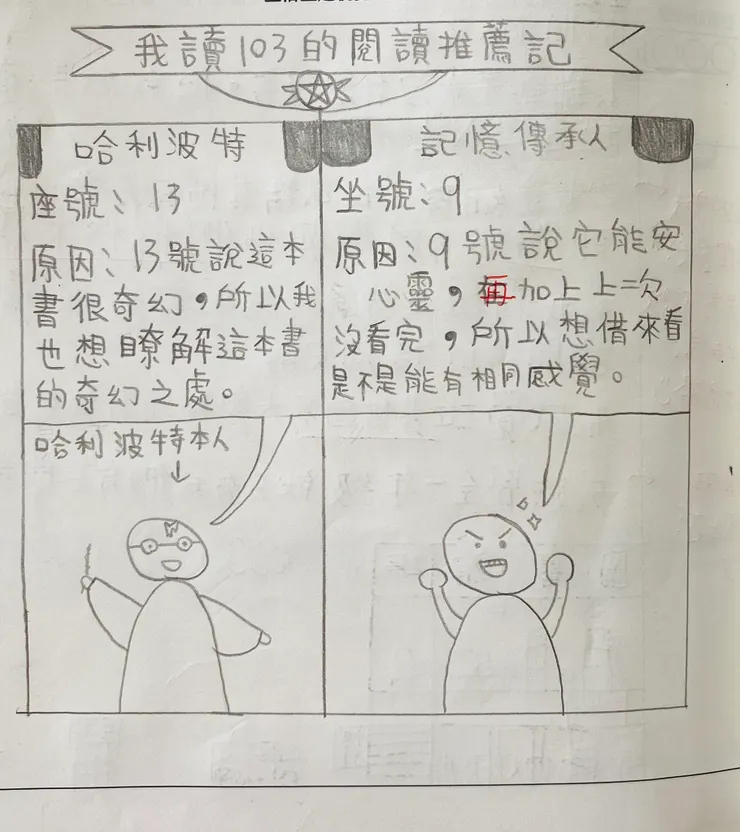 我讀103的閱讀推薦記
哈利波特
座號：13
原因：13號說這本
書很奇幻，所以我
也想瞭解這本書
的奇幻之處。
記憶傳承人
坐號：9
原因：9號說它能安
心靈，再加上上次
沒看完，所以想借來看
是不是能有相同感覺。
哈利波特本人